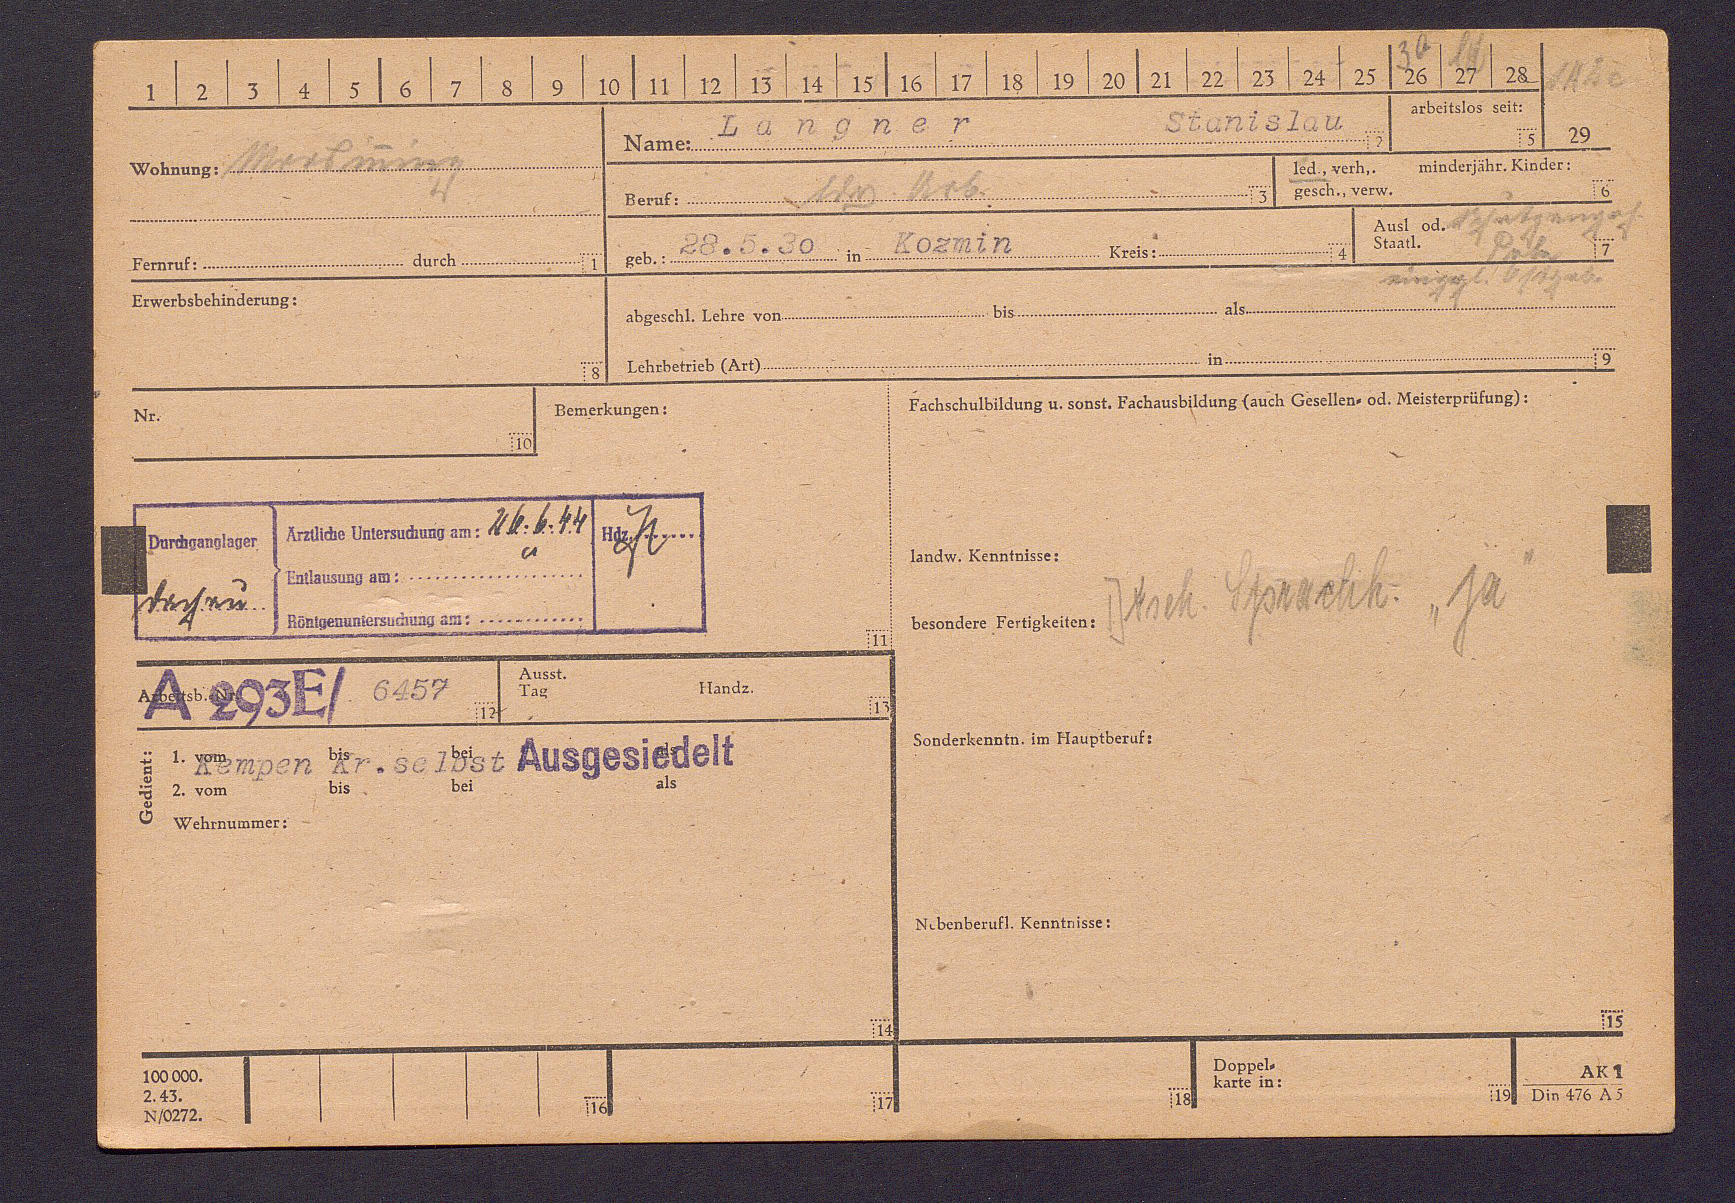 1 2 3 4 5 6 7 8 9 10 11 12 13 14 15 16 17 18 19 20 21 22 23 24 25 26 27 28
29
Name: Langner Stanislau 2
arbeitslos seit: 5
Wohnung:
Beruf: ldw Arb. 3
led., verh., minderjähr. Kinder:
gesch., verw. 6
geb.: 28.5.30 in Kozmin Kreis: 4
Ausl od.
Staatl. 7
Fernruf: durch 1
Erwerbsbehinderung: 8
abgeschl. Lehre von bis als
Lehrbetrieb (Art) in 9
Nr. 10
Bemerkungen:
Fachschulbildung u. sonst. Fachausbildung (auch Gesellen- od. Meisterprüfung):
Durchganglager
Dachau
Ärztliche Untersuchung am: 26.6.44
Entlausung am: "
Röntgenuntersuchung am:
Hdz.
11
landw. Kenntnisse:
besondere Fertigkeiten: Dtsch. Sprachk. "ja"
Arbeitsb. Nr. A 293E/ 6457 12
Ausst.
Tag Handz. 13
Gedient:
1. vom bis bei als
Kempen Kr.selbst Ausgesiedelt
2. vom bis bei als
Wehrnummer:
14
Sonderkenntn. im Hauptberuf:
Nebenberufl. Kenntnisse:
15
100 000.
2. 43.
N/0272.
16
17
18
Doppel-
karte in: 19
AK 1
Din 476 A 5